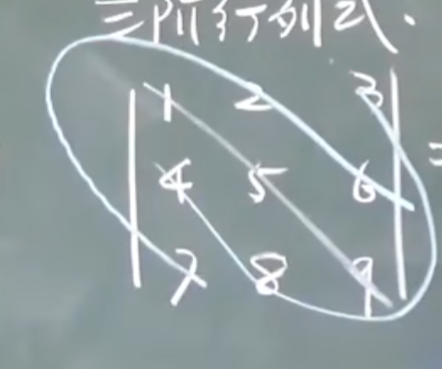 三阶行列式.
| 1 2 3 | =
| 4 5 6 |
| 7 8 9 |